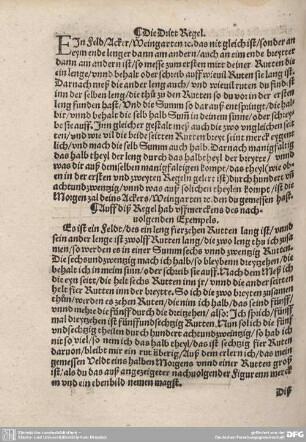 ¶ Die Dritt Regel.
EIn Feld/Acker/Weingarten ꝛc. das nit gleich ist/sonder an
eym ende lenger dann am andern/auch an eim ende breyter
dann am andern ist/so messe zum ersten mitt deiner Rutten die
ein lenge/vnnd behalt oder schreib auff wieuil Ruten sie lang ist.
Darnach meß die ander leng auch/vnd wieuil ruten du findst
inn der selben leng/die thů zu den Rutten so du vor in der ersten
leng funden hast. Vnd die Summ so dar auß entspringt/die halb
bir/vnnd behalt die selb halb Sum̃ in deinem sinne/oder schreib
sie auff. Inn gleycher gestalt meß auch die zwo vngleichen brei
ten/vnd wie vil die beide seitten Rutten breyt seint merck eygent
lich/vnd mach die selb Summ auch halb. Darnach manigfaltig
das halb theyl der leng durch das halb theyl der breytte/ vnd
was dir auß demselben manigfaltigen kompt/das theyl/wie ob
en in der ersten vnd zweyten Regeln geleret ist/durch hundert vñ
achtundzwentzig/vnnd was auß solichen theylen kompt/ist die
Morgen zal deins Ackers/Weingarten ꝛc. den du gemessen hast.
¶ Auff diß Regel hab vffmerckens des nach-
uolgenden Exempels.
Es ist ein Feldt/des ein leng fierzehen Rutten lang ist/ vnnd
sein ander lenge ist zwolff Rutten lang/die zwo leng thu ich zusa
men/so werden es in einer Summ sechs vnnd zwentzig Rutten
Die sechsundzwentzig mach ich halb/so bleyben dreytzehen/die
behalt ich in meim sinn/oder schreib sie auff. Nach dem Meß ich
die eyn seitt/die helt sechs Rutten inn der breyt/ vnnd die ander seitt
helt fier Rutten inn der breytte. So ich die zwo breyten zusamen
thůn/werden es zehen Rutten/die nim ich halb/das seind fünff/
vnnd mehre die fünff durch die dreitzehen/also: Ich sprich/fünff
mal dreytzehen ist fünffundsechtzig Rutten. Nun solich die fünff
vndsechtzig theilen durch hundert achtundzwentzig/so hab ich
nit so vil/so nem ich das halb theyl/das ist sechtzig fier Rutten
daruon/bleibt mir ein rut überig/Auß dem erlern ich/das mein
gemessen Veldt eins halben Morgens vnnd einer Rutten groß
ist/als du das auß angezeigeter nachuolgender Figur enn merck
en vnd ein ebenbild nemen magst.
Diß